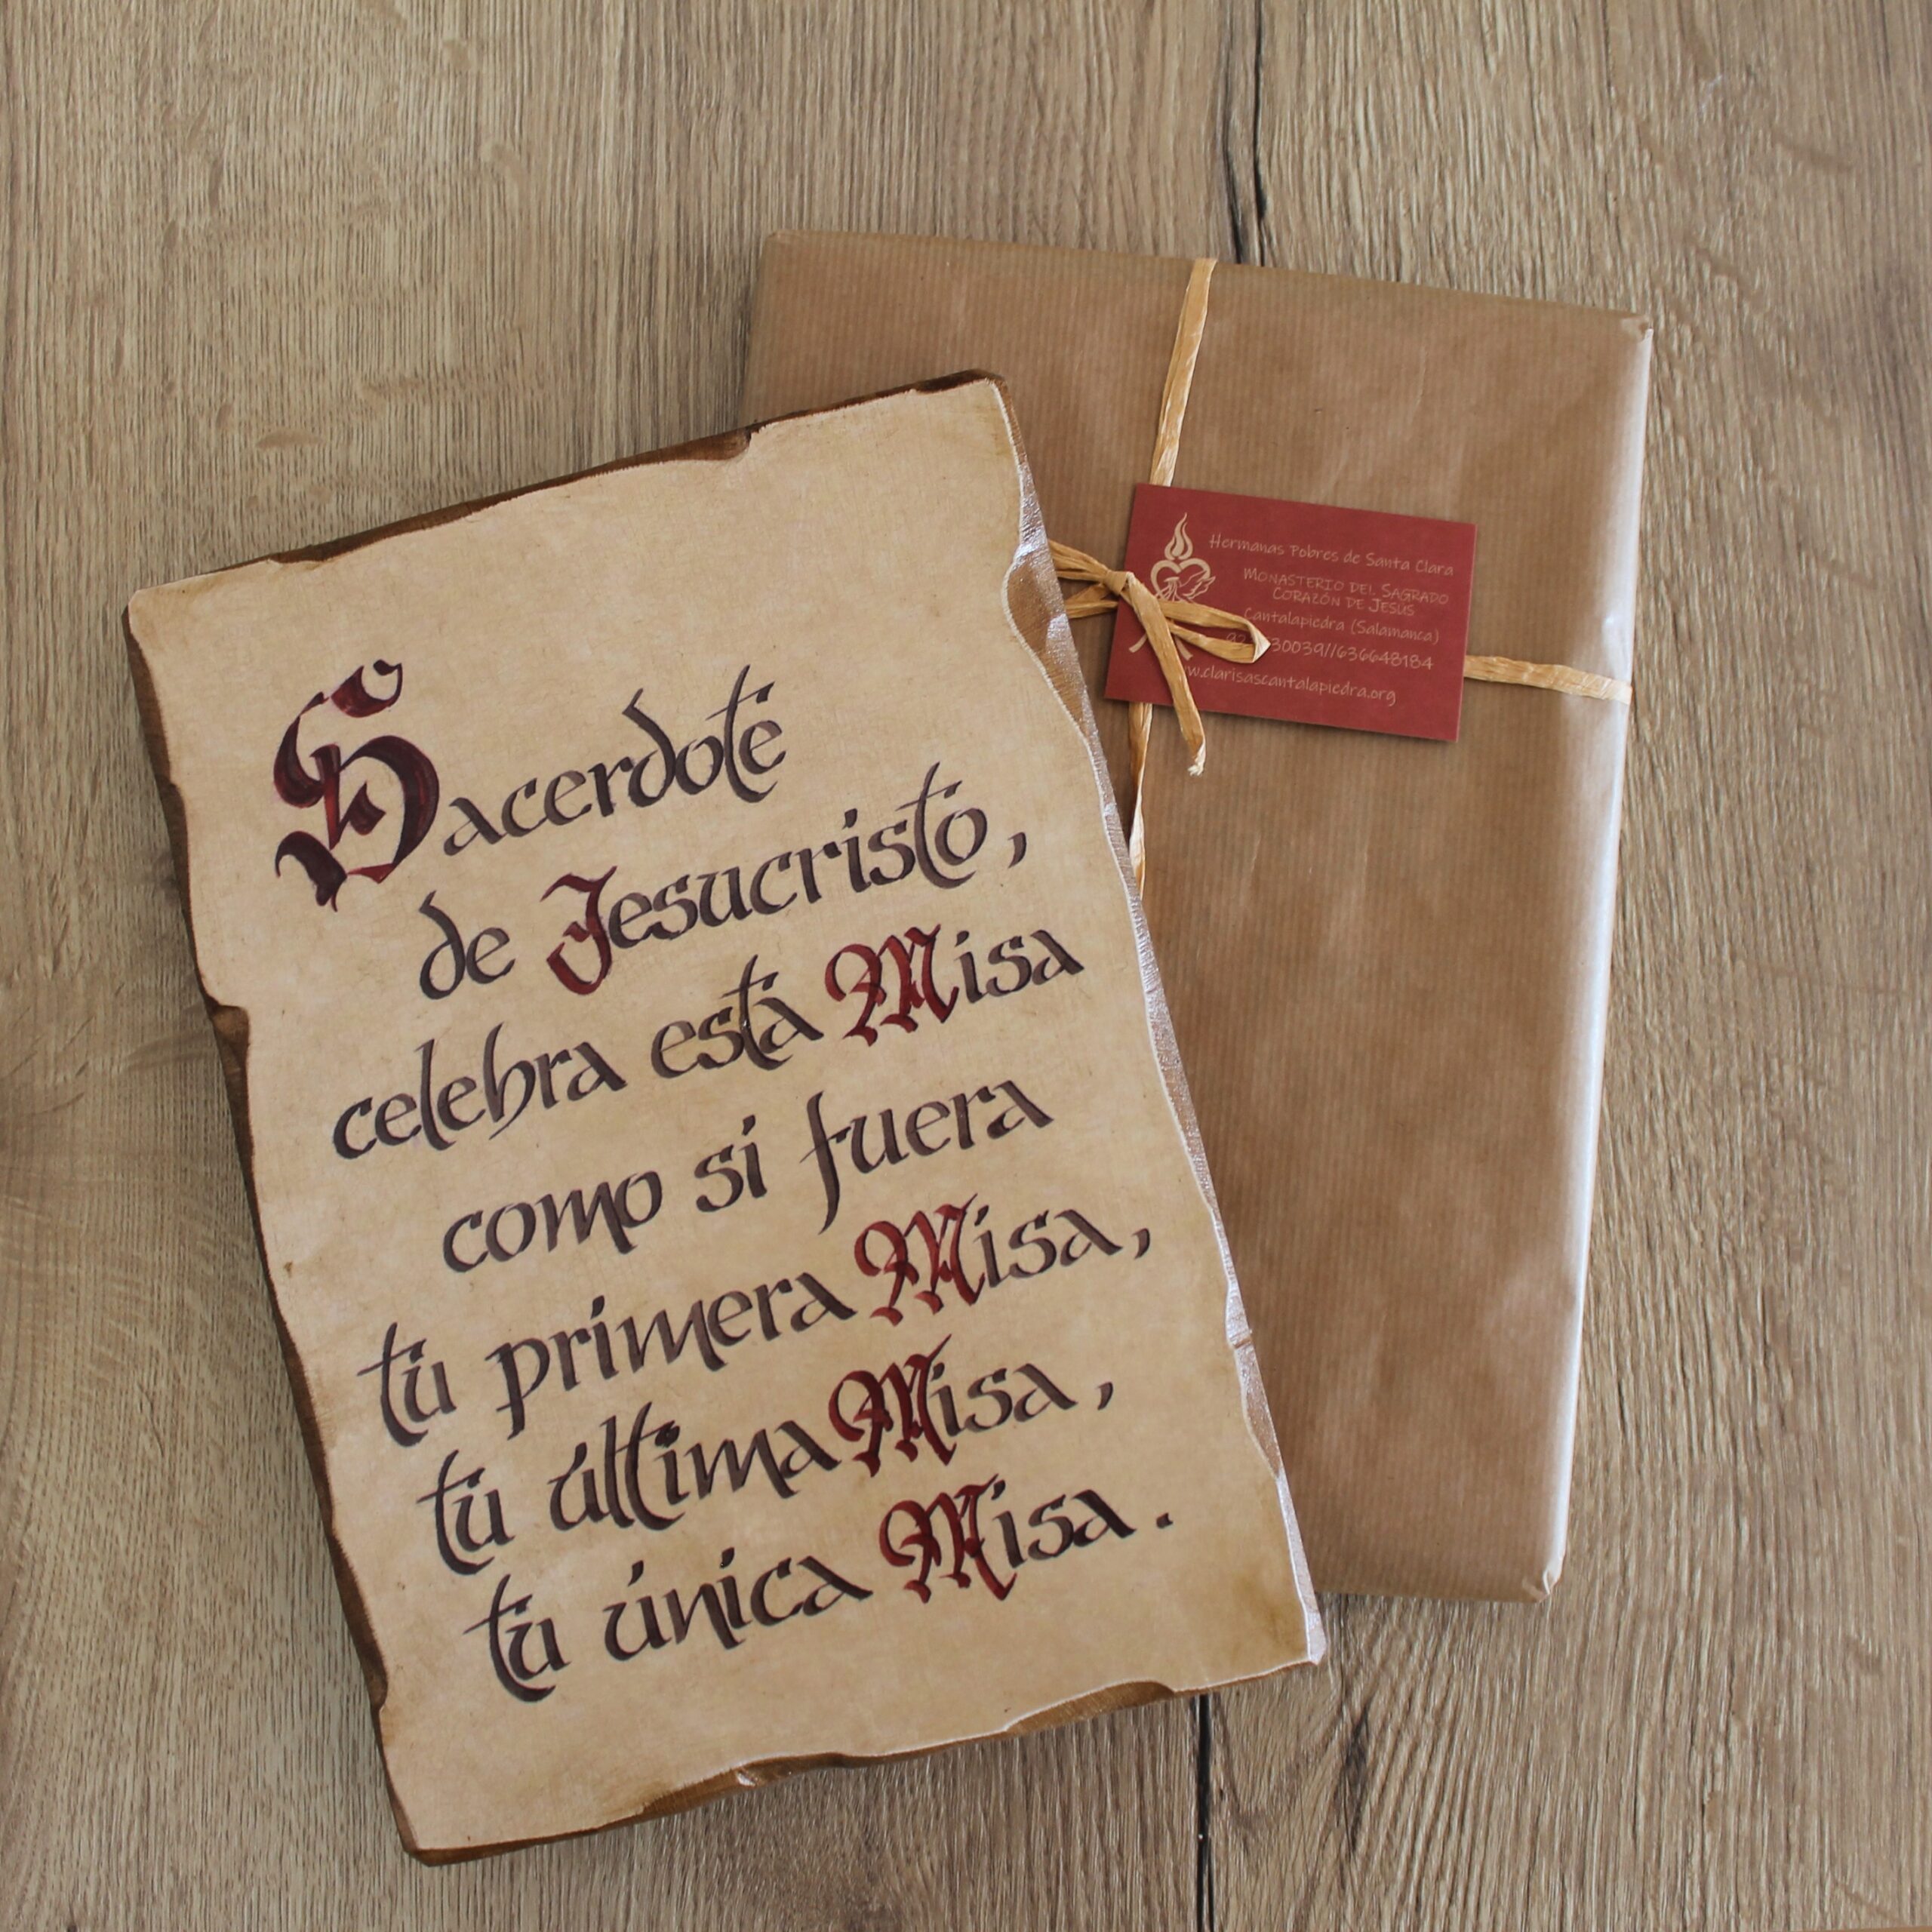 Sacerdote
de Jesucristo,
celebra esta Misa
como si fuera
tu primera Misa,
tu última Misa,
tu única Misa.
Hermanas Pobres de Santa Clara
MONASTERIO DEL SAGRADO
CORAZÓN DE JESÚS
Cantalapiedra (Salamanca)
30039//636648184
w.clarisascantalapiedra.org